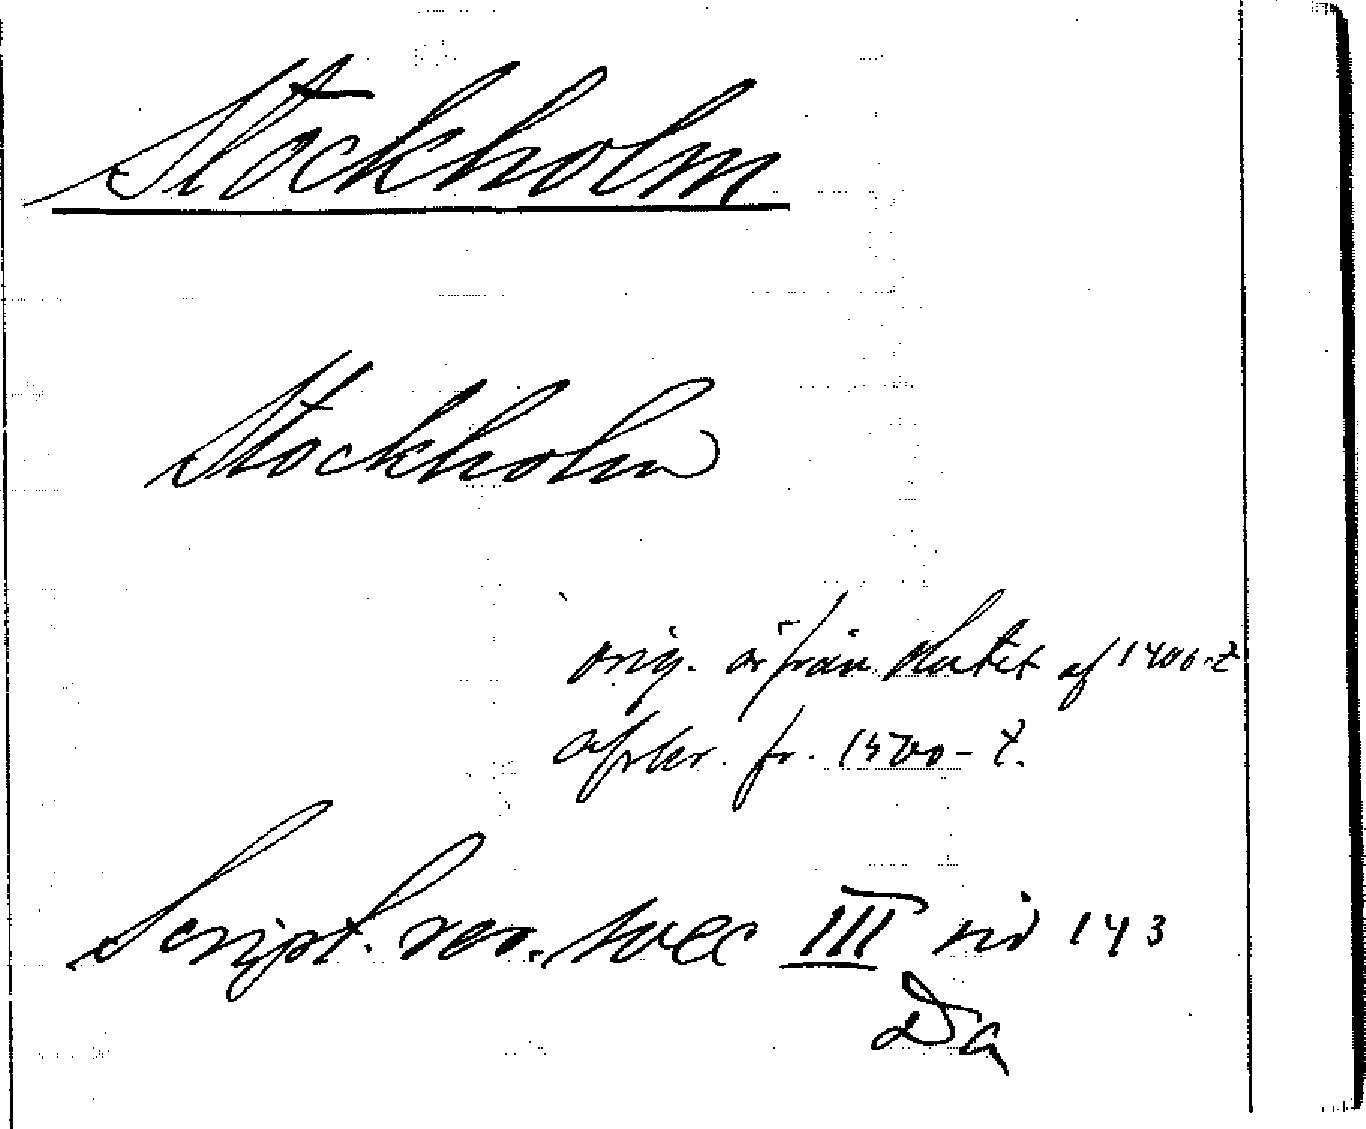 Stockholm
Stockholm
orig. är från slutet af 1400-t
afskr. fr. 1500-t.
Script. rer. svec III sid 143
Da